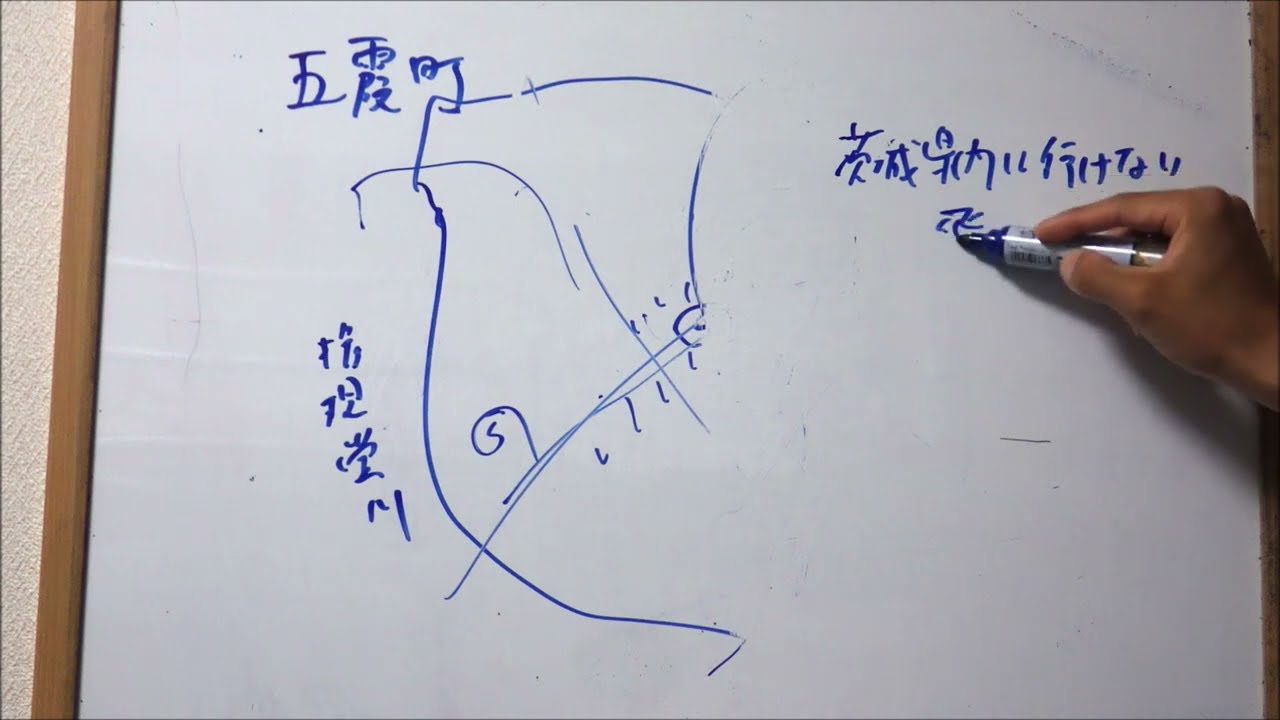 五霞町
茨城県内に行けない
権現堂川
S